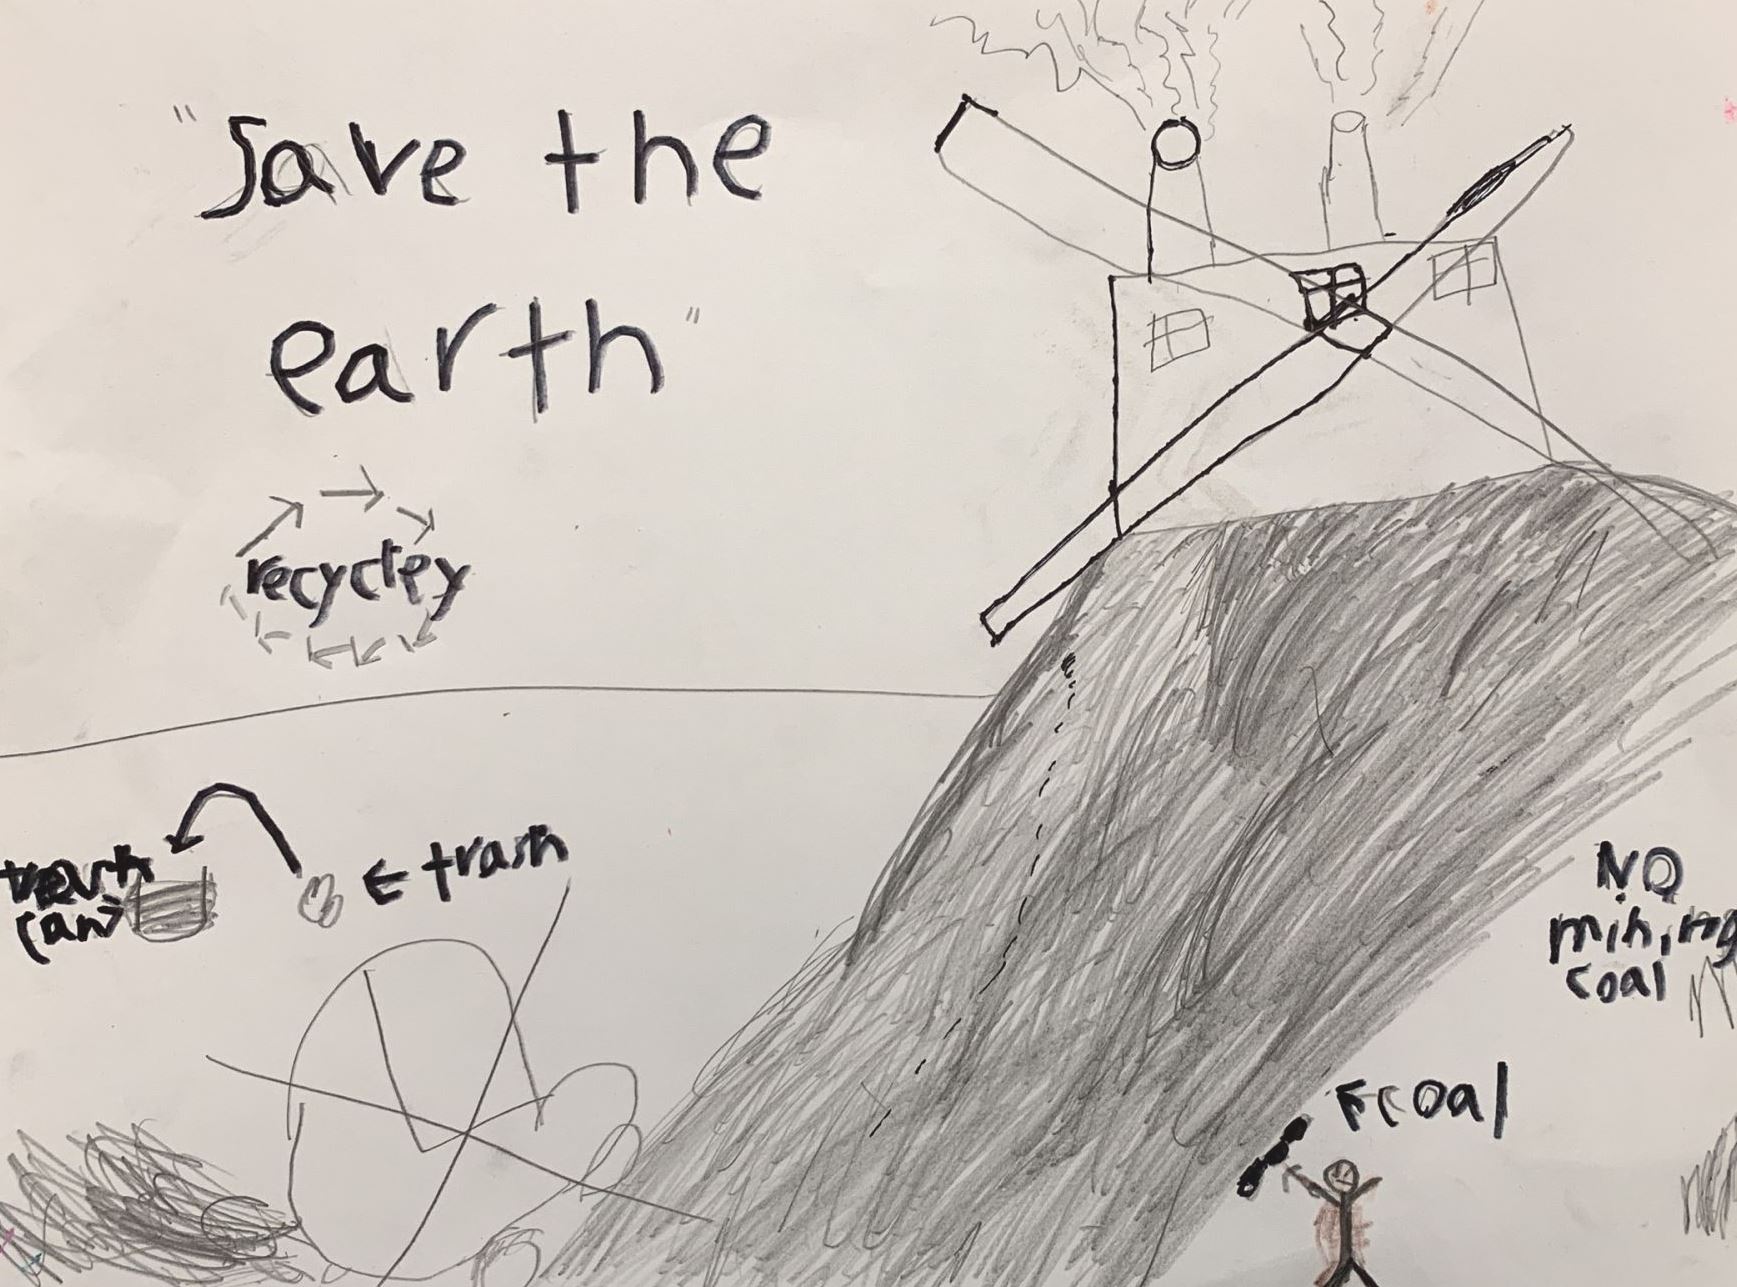 "Save the
earth"
recycley
trash
can
NO
mining
coal
coal